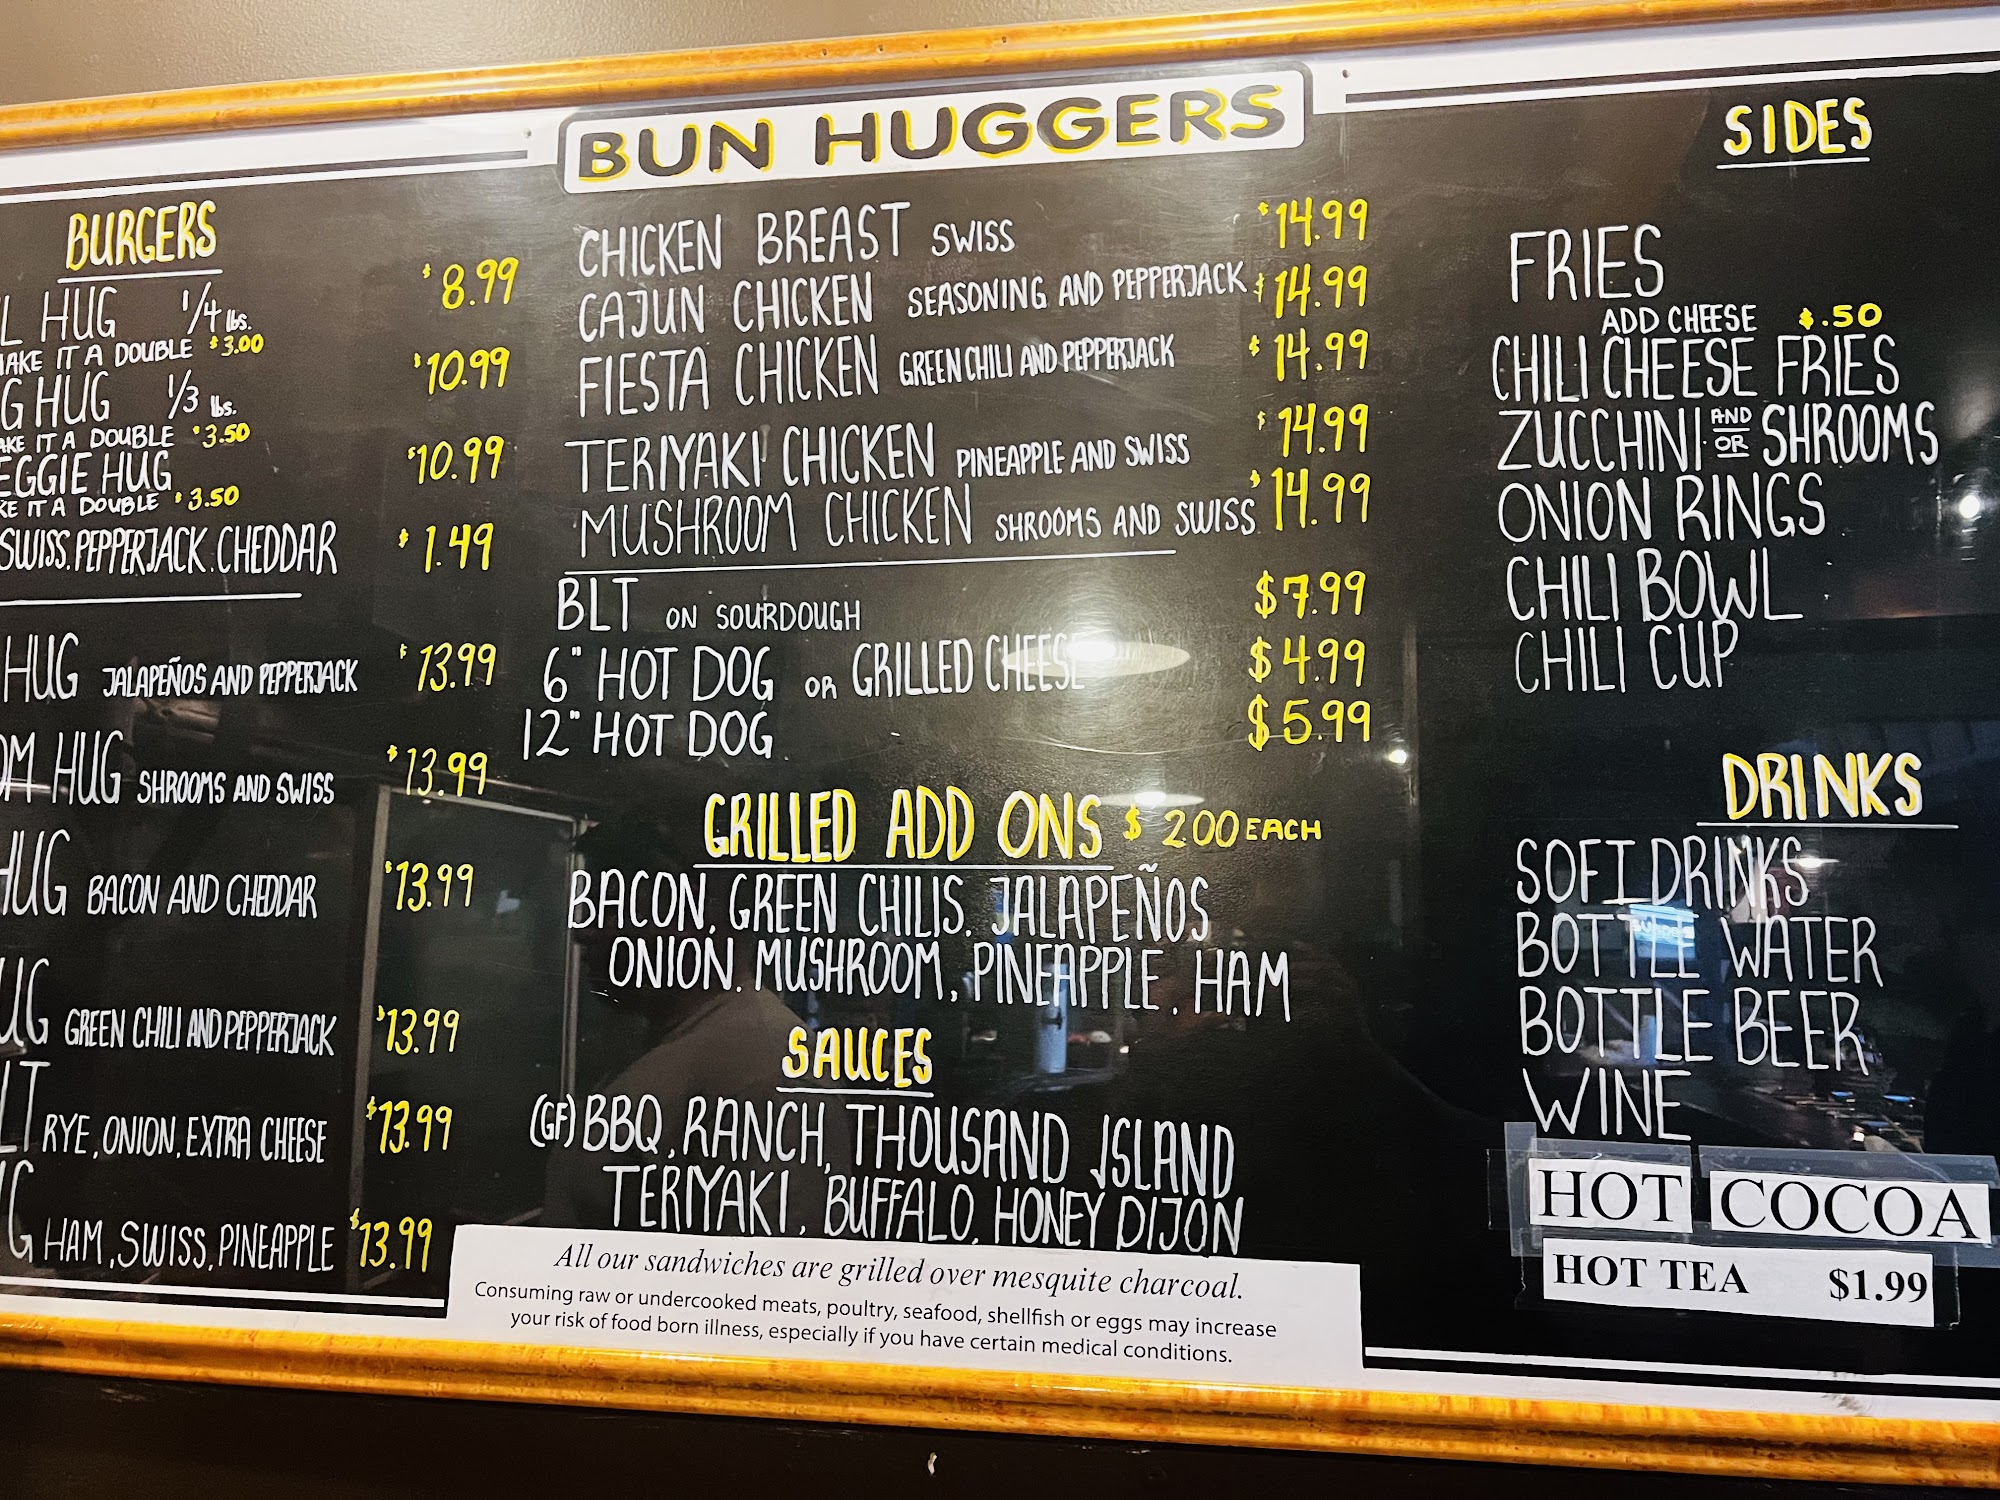 BUN HUGGERS
BURGERS
L HUG 1/4 lbs. $8.99
MAKE IT A DOUBLE $3.00
G HUG 1/3 lbs. $10.99
AKE IT A DOUBLE $3.50
EGGIE HUG $10.99
KE IT A DOUBLE $3.50
SWISS. PEPPERJACK. CHEDDAR $1.49
HUG JALAPEÑOS AND PEPPERJACK $13.99
OM HUG SHROOMS AND SWISS $13.99
HUG BACON AND CHEDDAR $13.99
UG GREEN CHILI AND PEPPERJACK $13.99
LT RYE, ONION, EXTRA CHEESE $13.99
G HAM, SWISS, PINEAPPLE $13.99
CHICKEN BREAST SWISS $14.99
CAJUN CHICKEN SEASONING AND PEPPERJACK $14.99
FIESTA CHICKEN GREEN CHILI AND PEPPERJACK $14.99
TERIYAKI CHICKEN PINEAPPLE AND SWISS $14.99
MUSHROOM CHICKEN SHROOMS AND SWISS $14.99
BLT ON SOURDOUGH $7.99
6" HOT DOG OR GRILLED CHEESE $4.99
12" HOT DOG $5.99
GRILLED ADD ONS $2.00 EACH
BACON, GREEN CHILIS. JALAPEÑOS
ONION. MUSHROOM, PINEAPPLE. HAM
SAUCES
(GF) BBQ, RANCH, THOUSAND ISLAND
TERIYAKI, BUFFALO, HONEY DIJON
All our sandwiches are grilled over mesquite charcoal.
Consuming raw or undercooked meats, poultry, seafood, shellfish or eggs may increase
your risk of food born illness, especially if you have certain medical conditions.
SIDES
FRIES
ADD CHEESE $.50
CHILI CHEESE FRIES
ZUCCHINI AND OR SHROOMS
ONION RINGS
CHILI BOWL
CHILI CUP
DRINKS
SOFT DRINKS
BOTTLE WATER
BOTTLE BEER
WINE
HOT COCOA
HOT TEA $1.99